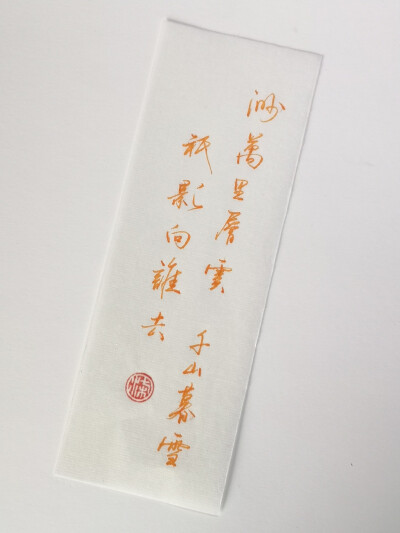 渺萬里層雲 千山暮雪
祇影向誰去